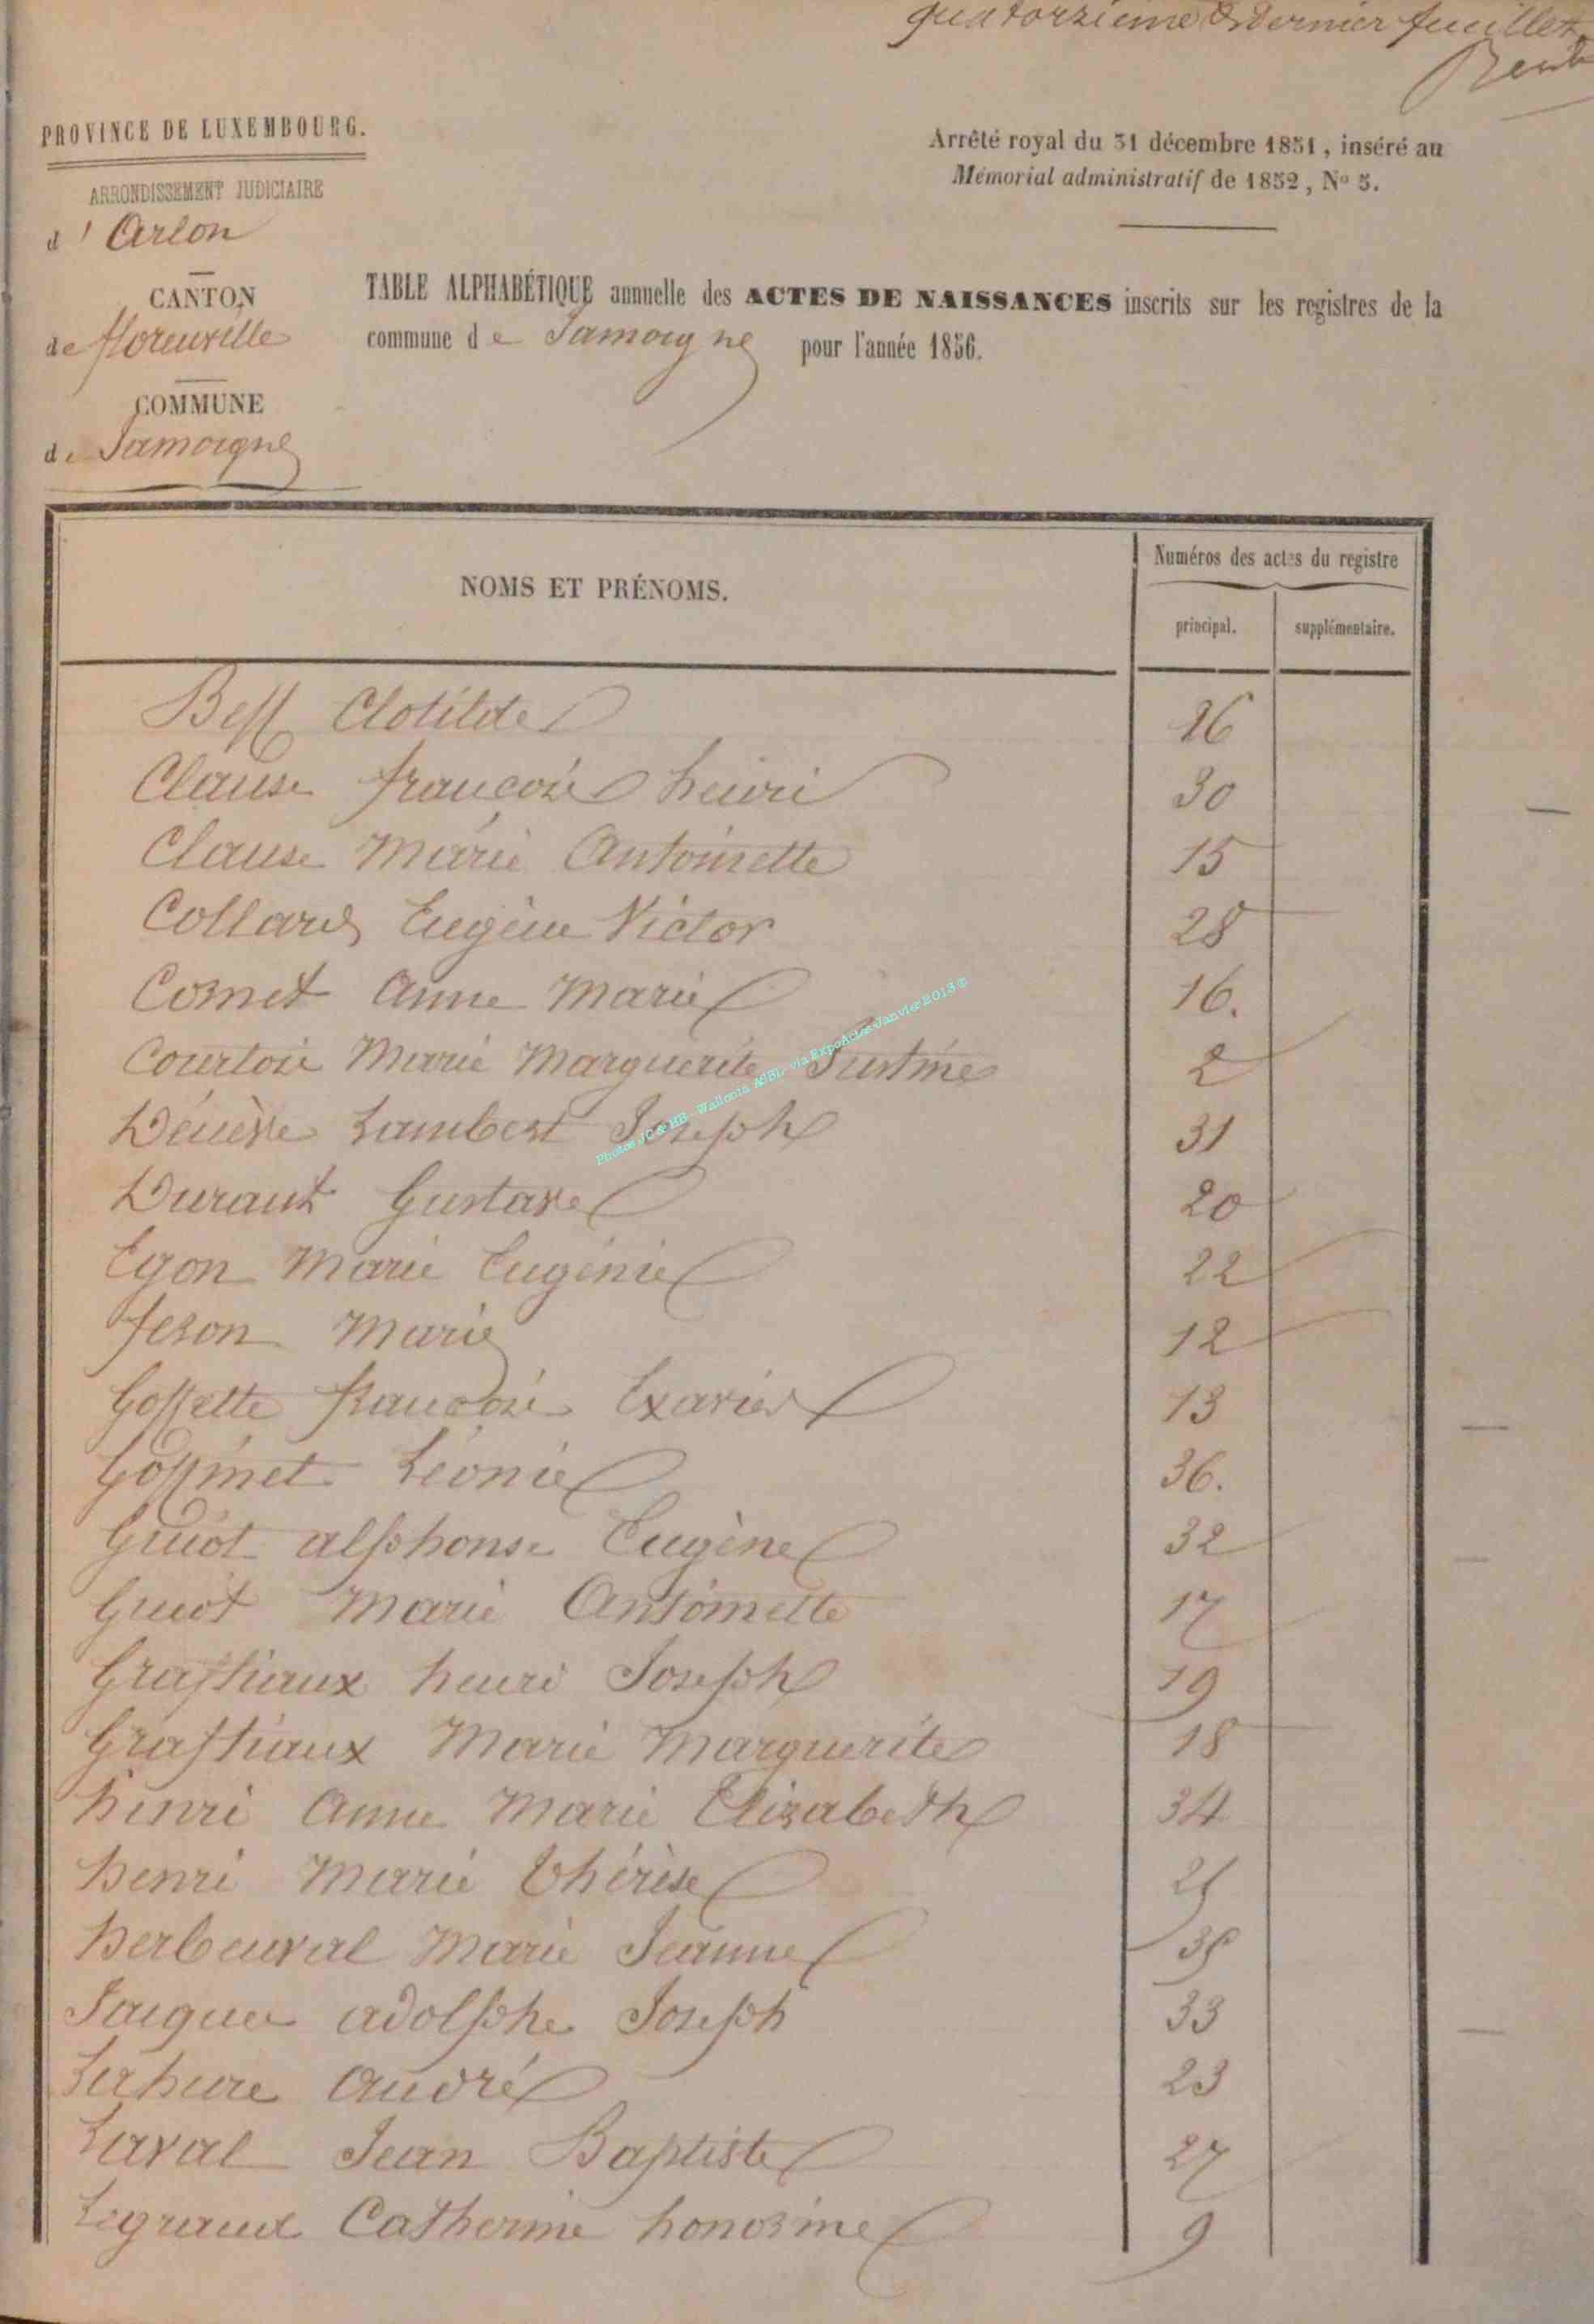 quatorzième & dernier feuillet
PROVINCE DE LUXEMBOURG.
ARRONDISSEMENT JUDICIAIRE
d'Arlon
CANTON
de florenville
COMMUNE
de Jamoigne
Arrêté royal du 31 décembre 1851, inséré au
Mémorial administratif de 1852, No 5.
TABLE ALPHABÉTIQUE annuelle des ACTES DE NAISSANCES inscrits sur les registres de la
commune de Jamoigne pour l'année 1856.
NOMS ET PRÉNOMS.
Numéros des actes du registre
principal. supplémentaire.
Clotilde
Clause françois henri 30
Clause Marie Antoinette 15
Collard Eugène Victor 28
Cornet Anne Marie 16.
Courtois Marie Marguerite Justine 2
Lambert Joseph 31
Durant Gustave 20
Egon Marie Eugénie 22
feron Marie 12
Gossette françois Exavier 13
Gossinet Léonie 36.
Guiot alphonse Eugène 32
Guiot Marie Antoinette 17
Graftiaux henri Joseph 19
Graftiaux Marie Marguerite 18
henri Anne Marie Elizabeth 34
henri Marie Thérèse 25
herbeuval Marie Jeanne 35
adolphe Joseph 33
André 23
Laval Jean Baptiste 27
Legrand Catherine honorine 9
Photos JC & HB - Wallonia ASBL - via ExpoActes Janvier 2013 ©